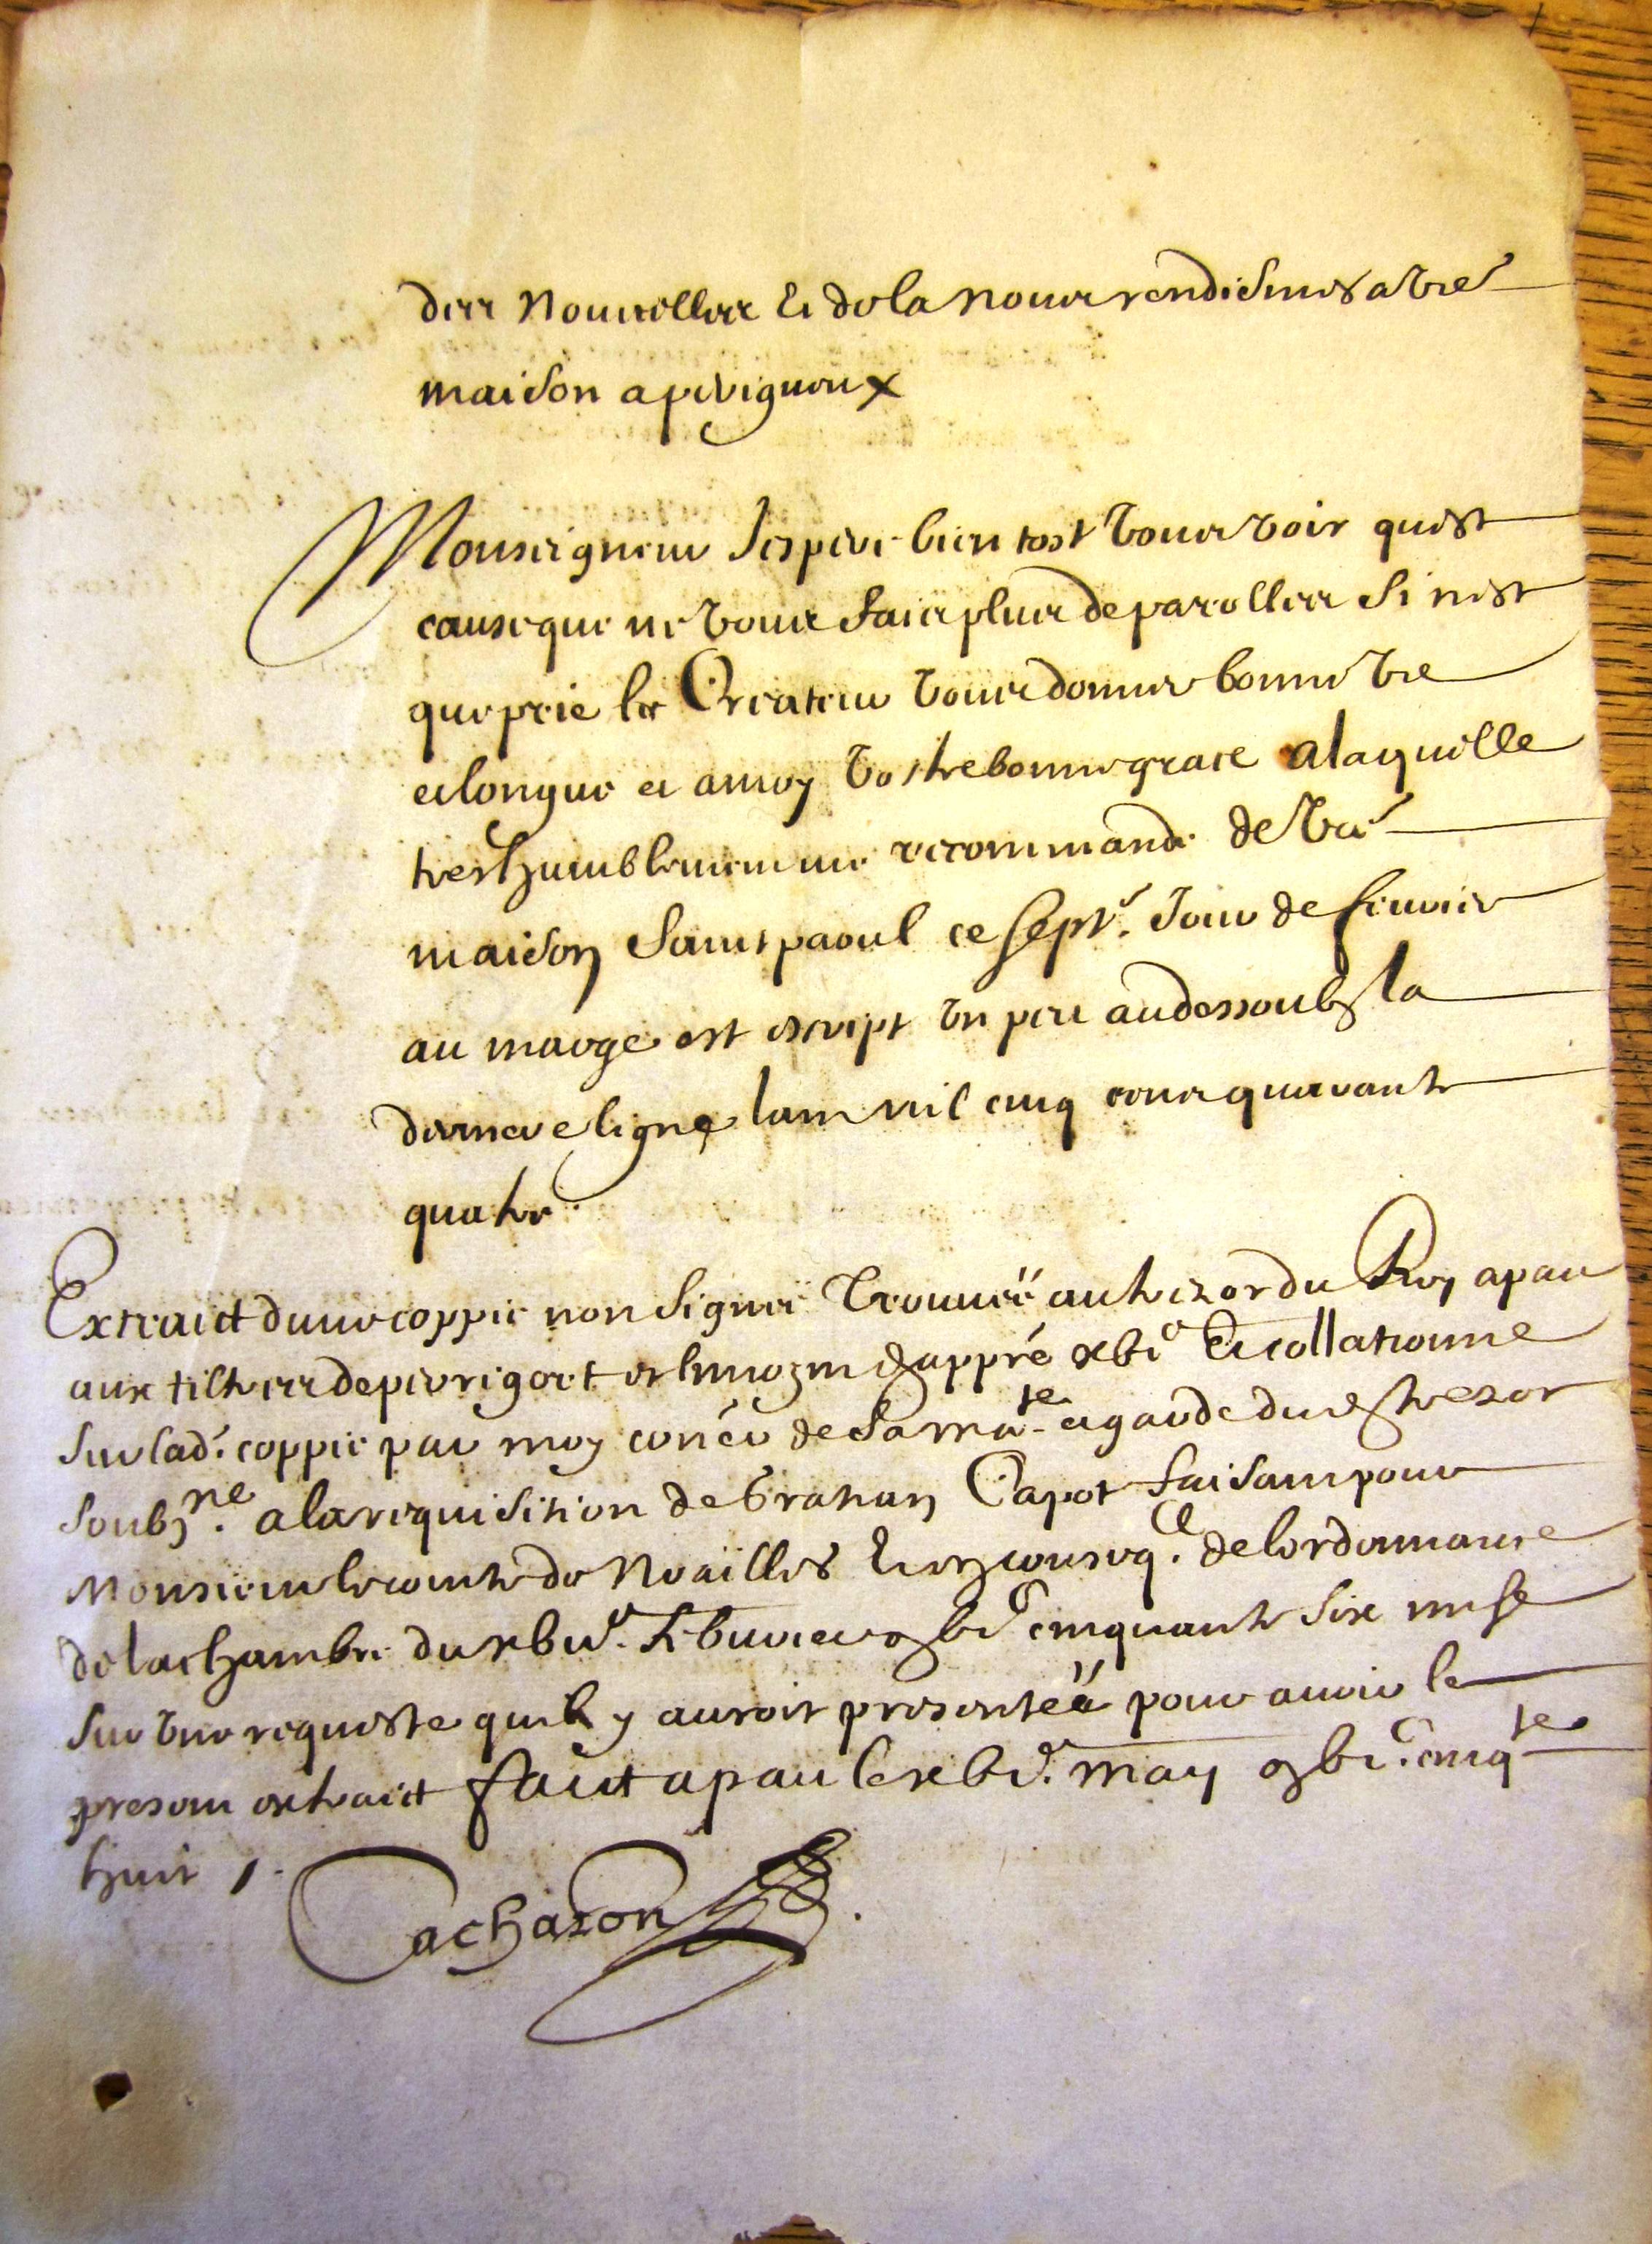 des Nouvelles Et dela nous rendismes a vre
maison a perigueux
Monseigneur Jespere bien tost vous voir quest
cause que ne vous fais plus de parolles Si nest
que prie le Createur vous donner bonne vie
et longue et a moy vostre bonne grace a laquelle
treshumblement me recommande de vre
maison Saint paoul ce sept.e Jour de feuvrier
au marge est escript vn peu audessoubs la
derniere ligne lan mil cinq cens quarante
quatre
Extraict dune coppie non Signeé trouueé au trezor du Roy a pau
aux tiltres de perrigort et limozin et appré xbi.e Et collationne
Sur lad.e coppie par moy con.er de Sa ma.te et garde dud trezor
soubz.ne a la requisition de Gratian Capot faisant pour
Monsieur le comte de Noailles En conseq.ce de lordonnance
de la chambre du xbii.e feburier gbi.c cinquante Six mise
Sur vne requeste quil y auroit presenteé pour auoir le
present extraict faict a pau le xbi.e may gbi.c cinq.te
huit /.
Cachazon